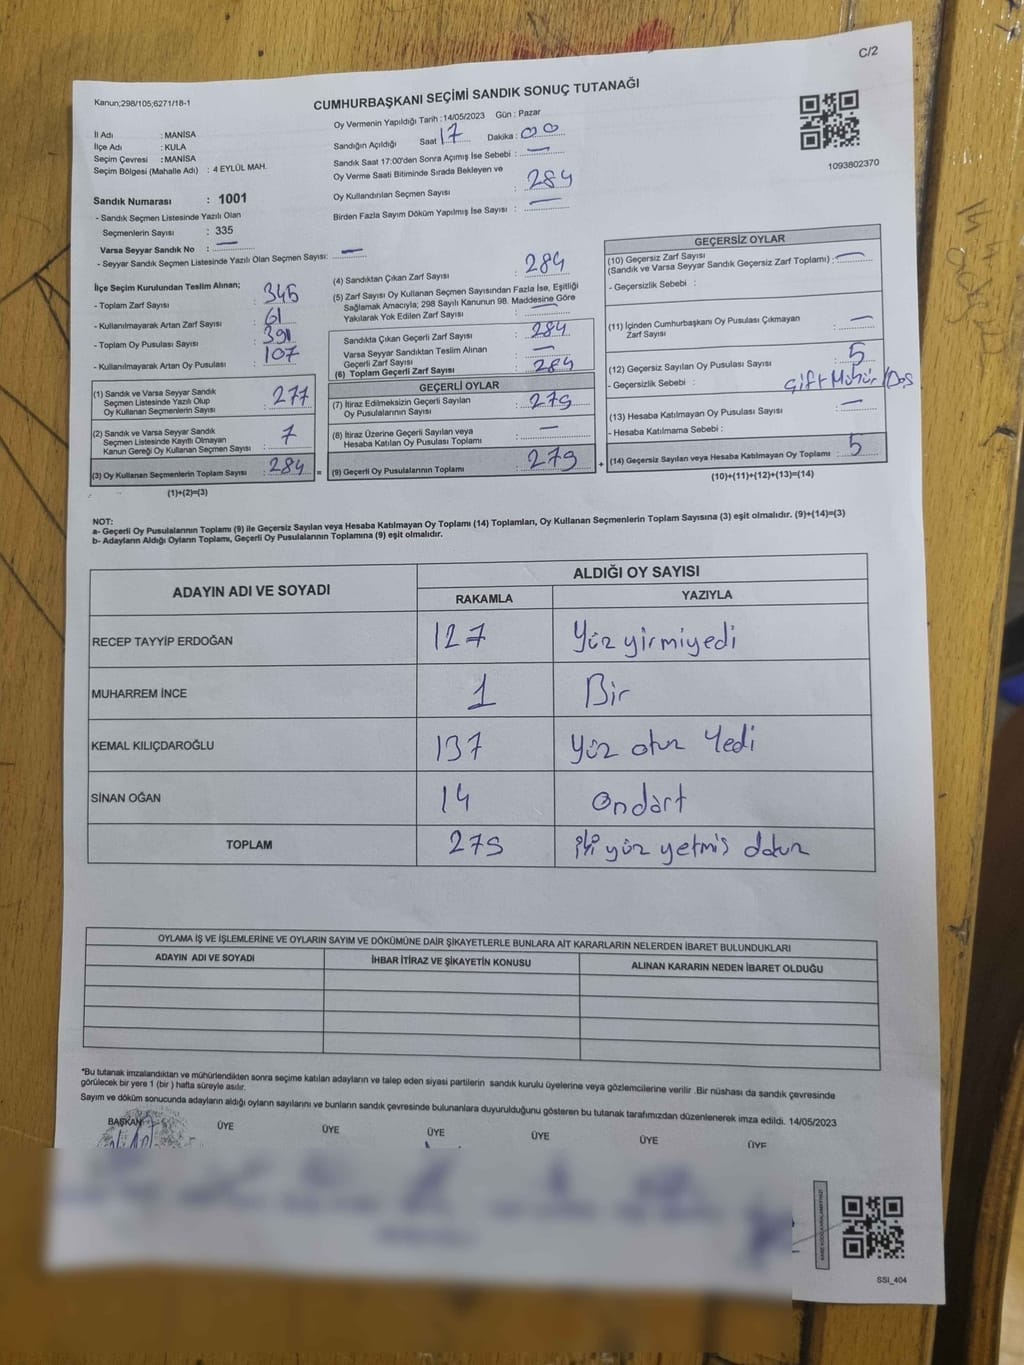 C/2
Kanun;298/105;6271/18-1
CUMHURBAŞKANI SEÇİMİ SANDIK SONUÇ TUTANAĞI
Oy Vermenin Yapıldığı Tarih :14/05/2023 Gün : Pazar
İl Adı : MANİSA
İlçe Adı : KULA
Seçim Çevresi : MANİSA
Seçim Bölgesi (Mahalle Adı) : 4 EYLÜL MAH.
Sandığın Açıldığı Saat 17 Dakika : 00
Sandık Saat 17:00'den Sonra Açımış İse Sebebi : —
Oy Verme Saati Bitiminde Sırada Bekleyen ve
Oy Kullandırılan Seçmen Sayısı : 284
Birden Fazla Sayım Döküm Yapılmış İse Sayısı : —
1093802370
Sandık Numarası : 1001
- Sandık Seçmen Listesinde Yazılı Olan
Seçmenlerin Sayısı : 335
Varsa Seyyar Sandık No : —
- Seyyar Sandık Seçmen Listesinde Yazılı Olan Seçmen Sayısı: —
İlçe Seçim Kurulundan Teslim Alınan;
- Toplam Zarf Sayısı : 345
- Kullanılmayarak Artan Zarf Sayısı : 61
- Toplam Oy Pusulası Sayısı : 391
- Kullanılmayarak Artan Oy Pusulası : 107
(1) Sandık ve Varsa Seyyar Sandık
Seçmen Listesinde Yazılı Olup
Oy Kullanan Seçmenlerin Sayısı : 277
(2) Sandık ve Varsa Seyyar Sandık
Seçmen Listesinde Kayıtlı Olmayan
Kanun Gereği Oy Kullanan Seçmen Sayısı : 7
(3) Oy Kullanan Seçmenlerin Toplam Sayısı : 284 =
(1)+(2)=(3)
(4) Sandıktan Çıkan Zarf Sayısı : 284
(5) Zarf Sayısı Oy Kullanan Seçmen Sayısından Fazla İse, Eşitliği
Sağlamak Amacıyla; 298 Sayılı Kanunun 98. Maddesine Göre
Yakılarak Yok Edilen Zarf Sayısı : —
Sandıkta Çıkan Geçerli Zarf Sayısı : 284
Varsa Seyyar Sandıktan Teslim Alınan
Geçerli Zarf Sayısı : —
(6) Toplam Geçerli Zarf Sayısı : 284
GEÇERLİ OYLAR
(7) İtiraz Edilmeksizin Geçerli Sayılan
Oy Pusulalarının Sayısı : 279
(8) İtiraz Üzerine Geçerli Sayılan veya
Hesaba Katılan Oy Pusulası Toplamı : —
(9) Geçerli Oy Pusulalarının Toplamı : 279 +
GEÇERSİZ OYLAR
(10) Geçersiz Zarf Sayısı
(Sandık ve Varsa Seyyar Sandık Geçersiz Zarf Toplamı) : —
- Geçersizlik Sebebi :
(11) İçinden Cumhurbaşkanı Oy Pusulası Çıkmayan
Zarf Sayısı : —
(12) Geçersiz Sayılan Oy Pusulası Sayısı : 5
- Geçersizlik Sebebi : Çift Mühür/Boş
(13) Hesaba Katılmayan Oy Pusulası Sayısı : —
- Hesaba Katılmama Sebebi :
(14) Geçersiz Sayılan veya Hesaba Katılmayan Oy Toplamı : 5
(10)+(11)+(12)+(13)=(14)
NOT:
a- Geçerli Oy Pusulalarının Toplamı (9) ile Geçersiz Sayılan veya Hesaba Katılmayan Oy Toplamı (14) Toplamları, Oy Kullanan Seçmenlerin Toplam Sayısına (3) eşit olmalıdır. (9)+(14)=(3)
b- Adayların Aldığı Oyların Toplamı, Geçerli Oy Pusulalarının Toplamına (9) eşit olmalıdır.
ADAYIN ADI VE SOYADI ALDIĞI OY SAYISI
RAKAMLA YAZIYLA
RECEP TAYYİP ERDOĞAN 127 Yüz yirmiyedi
MUHARREM İNCE 1 Bir
KEMAL KILIÇDAROĞLU 137 Yüz otuz Yedi
SİNAN OĞAN 14 Ondört
TOPLAM 279 iki yüz yetmiş dokuz
OYLAMA İŞ VE İŞLEMLERİNE VE OYLARIN SAYIM VE DÖKÜMÜNE DAİR ŞİKAYETLERLE BUNLARA AİT KARARLARIN NELERDEN İBARET BULUNDUKLARI
ADAYIN ADI VE SOYADI İHBAR İTİRAZ VE ŞİKAYETİN KONUSU ALINAN KARARIN NEDEN İBARET OLDUĞU
*Bu tutanak imzalandıktan ve mühürlendikten sonra seçime katılan adayların ve talep eden siyasi partilerin sandık kurulu üyelerine veya gözlemcilerine verilir .Bir nüshası da sandık çevresinde
görülecek bir yere 1 (bir ) hafta süreyle asılır.
Sayım ve döküm sonucunda adayların aldığı oyların sayılarını ve bunların sandık çevresinde bulunanlara duyurulduğunu gösteren bu tutanak tarafımızdan düzenlenerek imza edildi. 14/05/2023
BAŞKAN ÜYE ÜYE ÜYE ÜYE ÜYE ÜYE
SSI_404